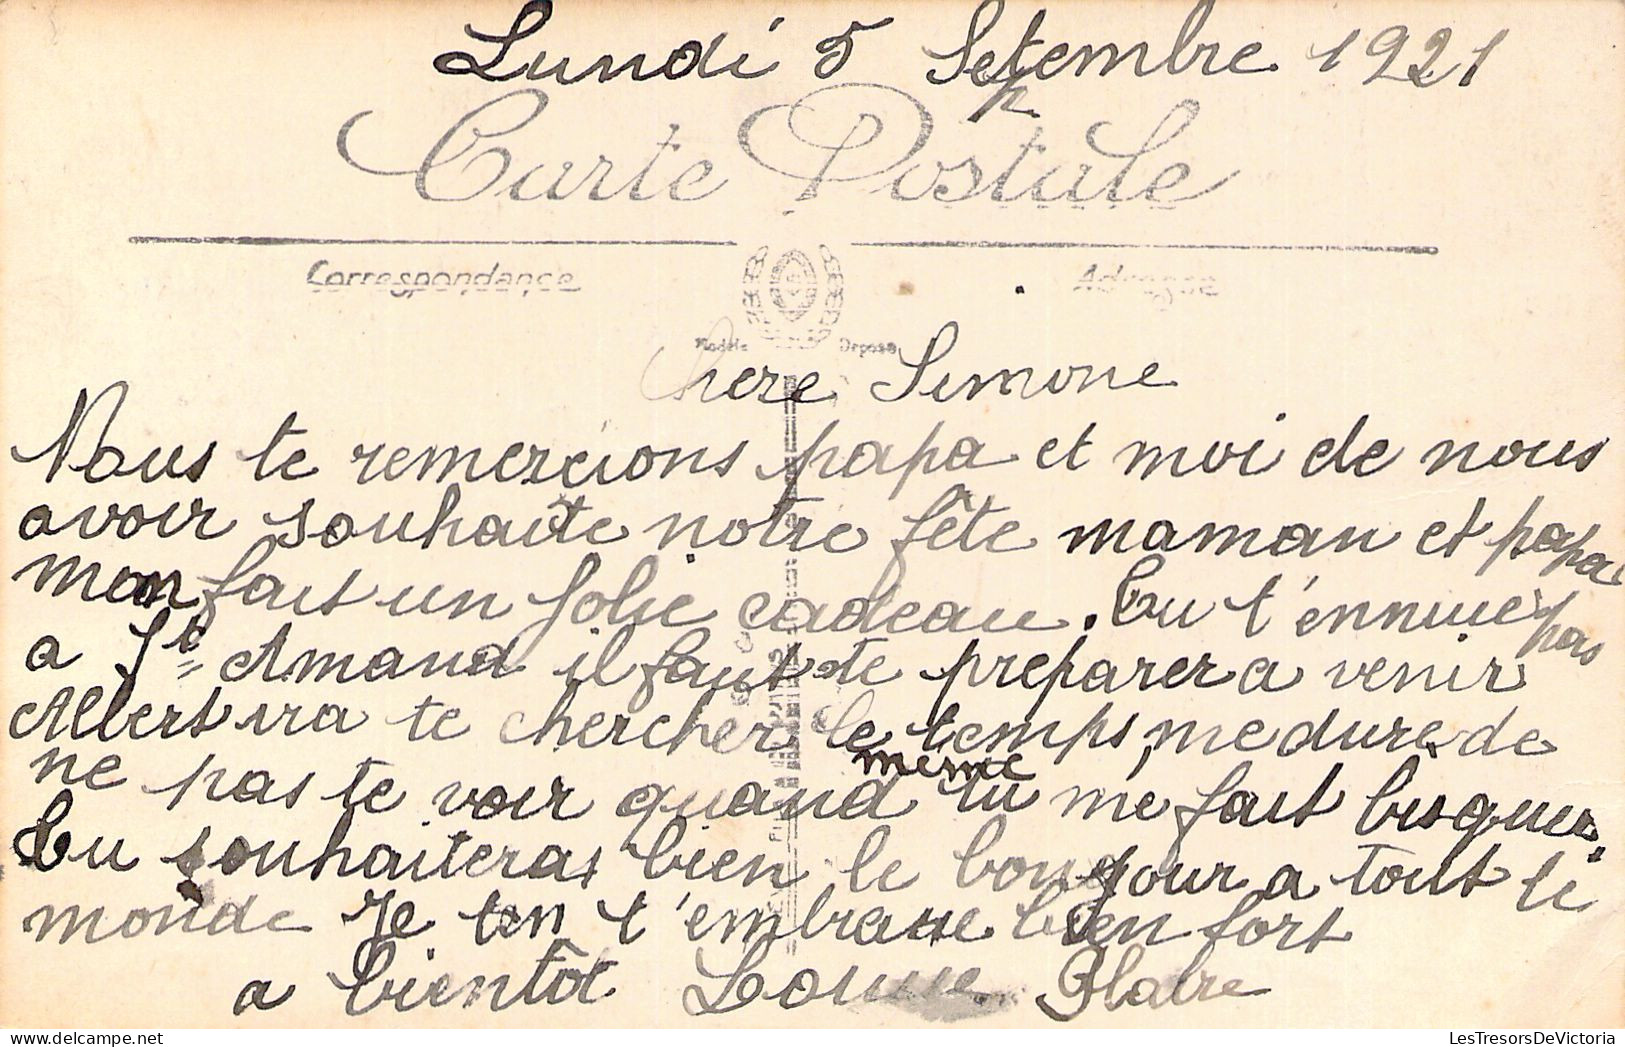 Lundi 5 Septembre 1921
Carte Postale
Correspondance
Adresse
Modèle Déposé
Chere Simone
Nous te remercions papa et moi de nous
avoir souhaite notre fête maman et papa
mon fait un jolie cadeau. Tu t'ennuie pas
a St Amand il faut te preparer a venir
Albert ira te chercher le temps me dure de
ne pas te voir quand même tu me fait bisquer.
Tu souhaiteras bien le bonjour a tout le
monde Je ten t'embrasse bien fort
a bientôt Louise
LesTresorsDeVictoria